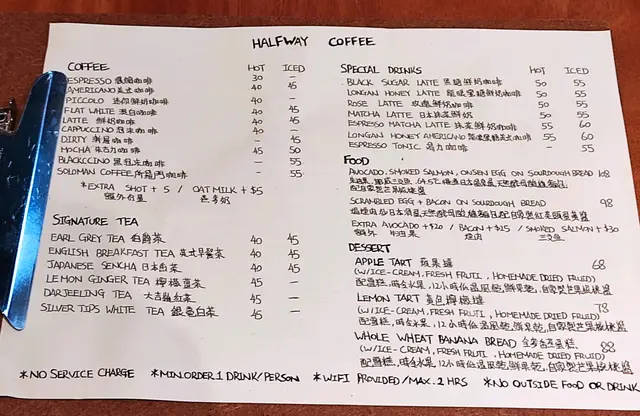 HALFWAY COFFEE
COFFEE HOT ICED
ESPRESSO 濃縮咖啡 30 –
AMERICANO 美式咖啡 40 45
PICCOLO 迷你鮮奶咖啡 40 –
FLAT WHITE 澳白咖啡 40 45
LATTE 鮮奶咖啡 40 45
CAPPUCCINO 泡沫咖啡 40 –
DIRTY 咖啡 – 45
MOCHA 朱古力咖啡 45 50
BLACKCCINO 黑泡沫咖啡 – 55
SOLOMAN COFFEE 所羅門咖啡 – 55
*EXTRA SHOT +5 / OAT MILK +$5
額外份量 燕麥奶
SIGNATURE TEA
EARL GREY TEA 伯爵茶 40 45
ENGLISH BREAKFAST TEA 英式早餐茶 40 45
JAPANESE SENCHA 日本煎茶 40 45
LEMON GINGER TEA 檸檬薑茶 45 –
DARJEELING TEA 大吉嶺紅茶 45 –
SILVER TIPS WHITE TEA 銀毫白茶 45 –
SPECIAL DRINKS HOT ICED
BLACK SUGAR LATTE 黑糖鮮奶咖啡 50 55
LONGAN HONEY LATTE 龍眼蜜糖鮮奶咖啡 50 55
ROSE LATTE 玫瑰鮮奶咖啡 50 55
MATCHA LATTE 日本抹茶鮮奶 50 55
ESPRESSO MATCHA LATTE 抹茶鮮奶咖啡 55 60
LONGAN HONEY AMERICANO 龍眼蜜糖美式咖啡 55 60
ESPRESSO TONIC 湯力咖啡 – 55
FOOD
AVOCADO, SMOKED SALMON, ONSEN EGG ON SOURDOUGH BREAD 108
牛油果, 挪威三文魚, 64.5℃ 日本溫泉蛋天然酵母酸種麵包
配自家製芒果
SCRAMBLED EGG + BACON ON SOURDOUGH BREAD 98
日本滑蛋天然酵母酸種麵包配自家製
EXTRA AVOCADO +$20 / BACON +$15 / SMOKED SALMON +$30
額外 牛油果 煙肉 三文魚
DESSERT
APPLE TART 蘋果撻 68
(W/ICE-CREAM, FRESH FRUTI, HOMEMADE DRIED FRUID)
配雪糕, 時令水果, 12小時低溫風乾鮮果乾, 自家製芒果
LEMON TART 黃色檸檬撻 78
(W/ICE-CREAM, FRESH FRUTI, HOMEMADE DRIED FRUID)
配雪糕, 時令水果, 12小時低溫風乾鮮果乾, 自家製芒果
WHOLE WHEAT BANANA BREAD 全麥香蕉蛋糕 88
(W/ICE-CREAM, FRESH FRUTI, HOMEMADE DRIED FRUID)
配雪糕, 時令水果, 12小時低溫風乾鮮果乾, 自家製芒果
*NO SERVICE CHARGE *MIN.ORDER 1 DRINK/PERSON *WIFI PROVIDED/MAX. 2 HRS *NO OUTSIDE FOOD OR DRINK